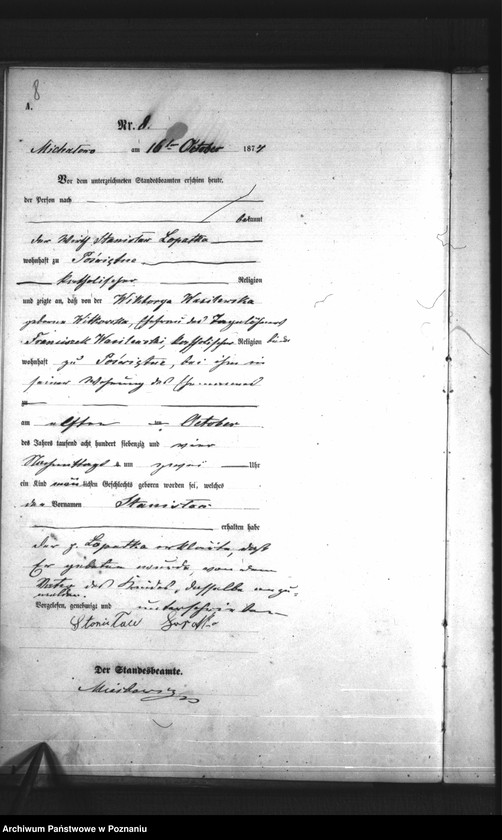 8
A.
Nr. 8.
Michalowo am 16ten October 1874
Vor dem unterzeichneten Standesbeamten erschien heute,
der Person nach
bekannt
der Wirth Stanislaw Lopatka
wohnhaft zu Poświętne
katholischer Religion
und zeigte an, daß von der Wiktorya Wasilewska
geborne Witkowska, Ehefrau des Tagelöhners
Franciszek Wasilewski, katholischer Religion beide
wohnhaft zu Poświętne, bei ihm in
seiner Wohnung des Ehemannes
zu
am elften October
des Jahres tausend acht hundert siebenzig und vier
Nachmittags um zwei Uhr
ein Kind männlichen Geschlechts geboren worden sei, welches
den Vornamen Stanislaw
erhalten habe
der p. Lopatka erklärte, daß
Er gebeten wurde von dem
Vater des Kindes, dasselbe anzu-
melden.
Vorgelesen, genehmigt und unterschrieben
Der Standesbeamte.